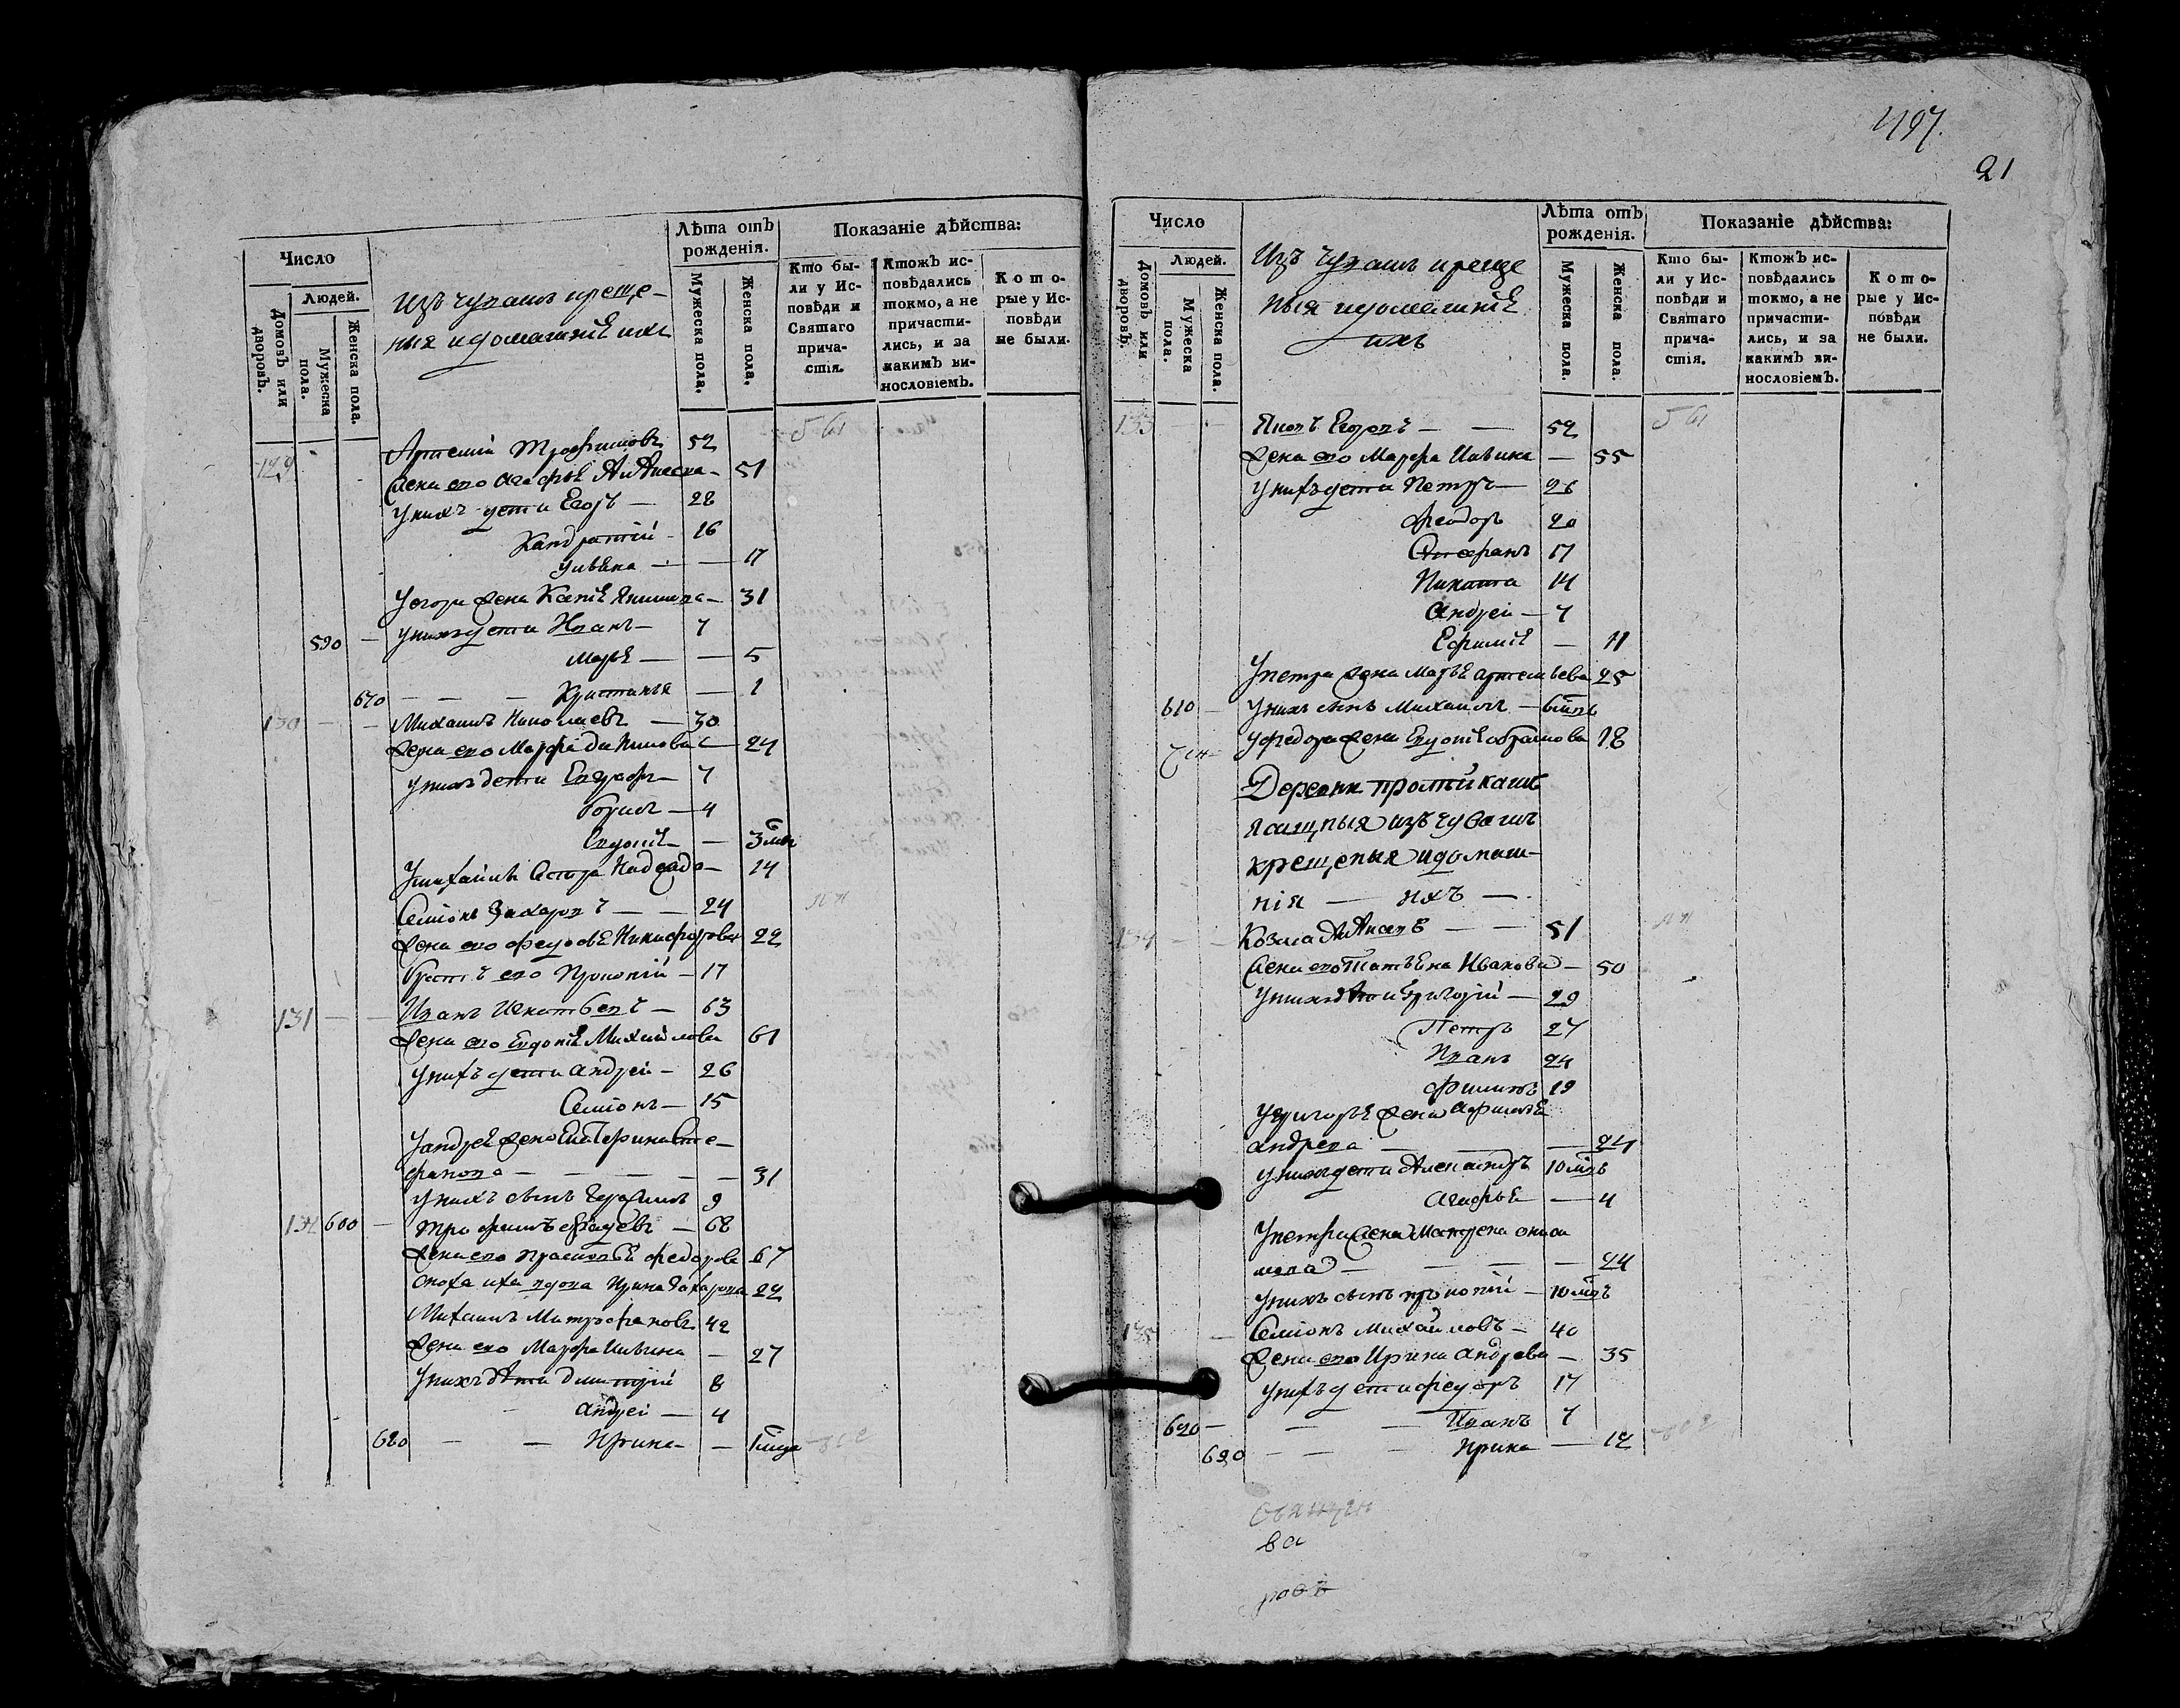 Число
Людей.
Домовъ или дворовъ.
Мужеска пола.
Женска пола.
Изъ чувашъ креще-
ныя идомашнiѣ ихъ
Лѣта отъ рожденiя.
Мужеска пола.
Женска пола.
Показанiе дѣйства:
Кто бы-
ли у Ис-
повѣди и
Святаго
прича-
стiя.
Ктожъ ис-
повѣдались
токмо, а не
причасти-
лись, и за
какимъ ви-
нословiемъ.
Кото-
рые у Ис-
повѣди
не были.
129 Артемiй Трофимовъ 52 бы
Жена его Агафьѣ 51
Унихъ дети Егоръ — 28
Кандратiй 16
Ульѣна — — 17
Уегора жена 31
590 — унихъ дети Иванъ — 7
Марьѣ — — 5
670 — — — Кристинья — 1
130 — — Михаилъ Николаевъ — 30
Жена его Марфа — 24
Унихъ дети Евграфъ — 7
Борисъ — 4
Евдокiѣ — — 3
Умихаила сестра — 14
Семiонъ Захаровъ — — 24 ли
Жена его Федосьѣ Никифорова 22
братъ его Прокопiй — 17
131 — — Иванъ — 63
Жена его Евдокiѣ Михайлова 61
Унихъ дети Андрей — 26
Семiонъ — 15
Уандреѣ жена Катерина Сте-
фанова — — — — — 31
Унихъ сынъ Герасимъ 9
132 600 — Трофимъ — 68
Жена его Прасковьѣ Федорова 67
Сноха ихъ вдова Ирина Захарова 22
Михаилъ Митрофановъ 42
Жена его Марфа Ильина — 27
Унихъ дети Дмитрiй 8
Андрей — 4
680 — — Ирина — — 1
497.
21
Число
Людей.
Домовъ или дворовъ.
Мужеска пола.
Женска пола.
Изъ чувашъ креще
ныя идомашнiѣ
ихъ
Лѣта отъ рожденiя.
Мужеска пола.
Женска пола.
Показанiе дѣйства:
Кто бы-
ли у Ис-
повѣди и
Святаго
прича-
стiя.
Ктожъ ис-
повѣдались
токмо, а не
причасти-
лись, и за
какимъ ви-
нословiемъ.
Кото-
рые у Ис-
повѣди
не были.
133 — — Яковъ Егоровъ — — 52 бы
Жена его Марфа Ильина — 55
Унихъ дети Петръ — 26
Феодоръ 20
Стефанъ 17
Никита 14
Андрей — 7
Ефимiѣ — 11
Упетра жена Марьѣ Артемьева 25
610 — Унихъ сынъ Михаилъ — 6
Уфедора жена Евдокiѣ Абрамова 18
Деревни
ясашныя изъ чувашъ
крещеныя идомаш-
нiя — ихъ —
134 — — Козма — — 51 ли
Жена его Татьѣна Иванова — 50
Унихъ дѣти Григорiй — 29
Петръ 27
Иванъ 24
Филипъ 19
Угригорьѣ жена
Андрева — — — 24
унихъ дети Александръ 10
Агафьѣ — 4
Упетра жена Матрена
— — — — 24
Унихъ сынъ Прокопiй — 10
135 — Семiонъ Михайловъ — 40
Жена его Ирина Андрева — 35
Унихъ дети Федоръ 17
620 — — — Иванъ 7
690 — — — Ирина — 12
ва
ровъ